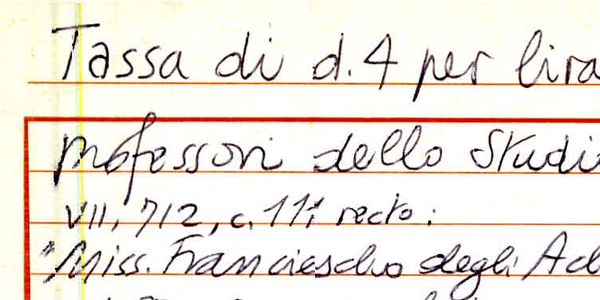 Tassa di d. 4 per lira
professori dello Studio
VII, 712, c. 11; recto:
"Miss. Franciescho degli